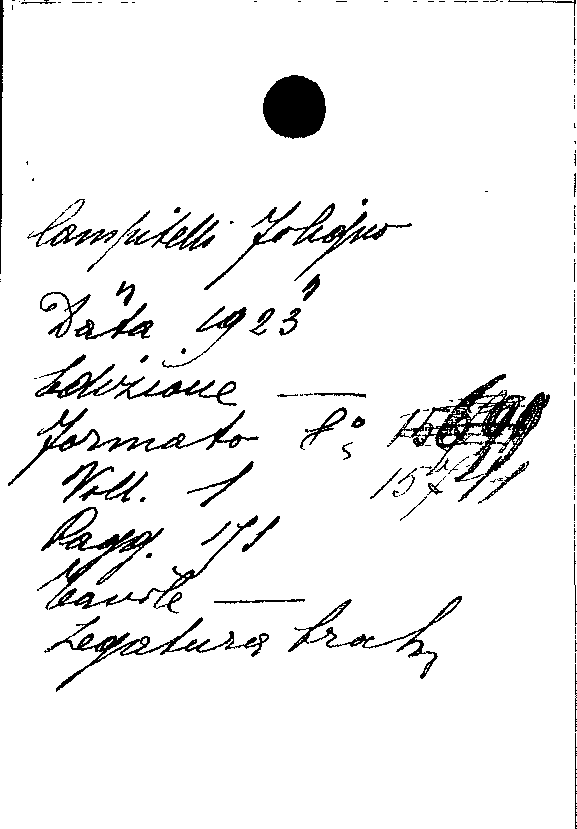 Campitelli Foligno
" "
Data 1923
Edizione —
Formato 8°
Voll. 1
Pagg. 171
Tavole —
Legatura